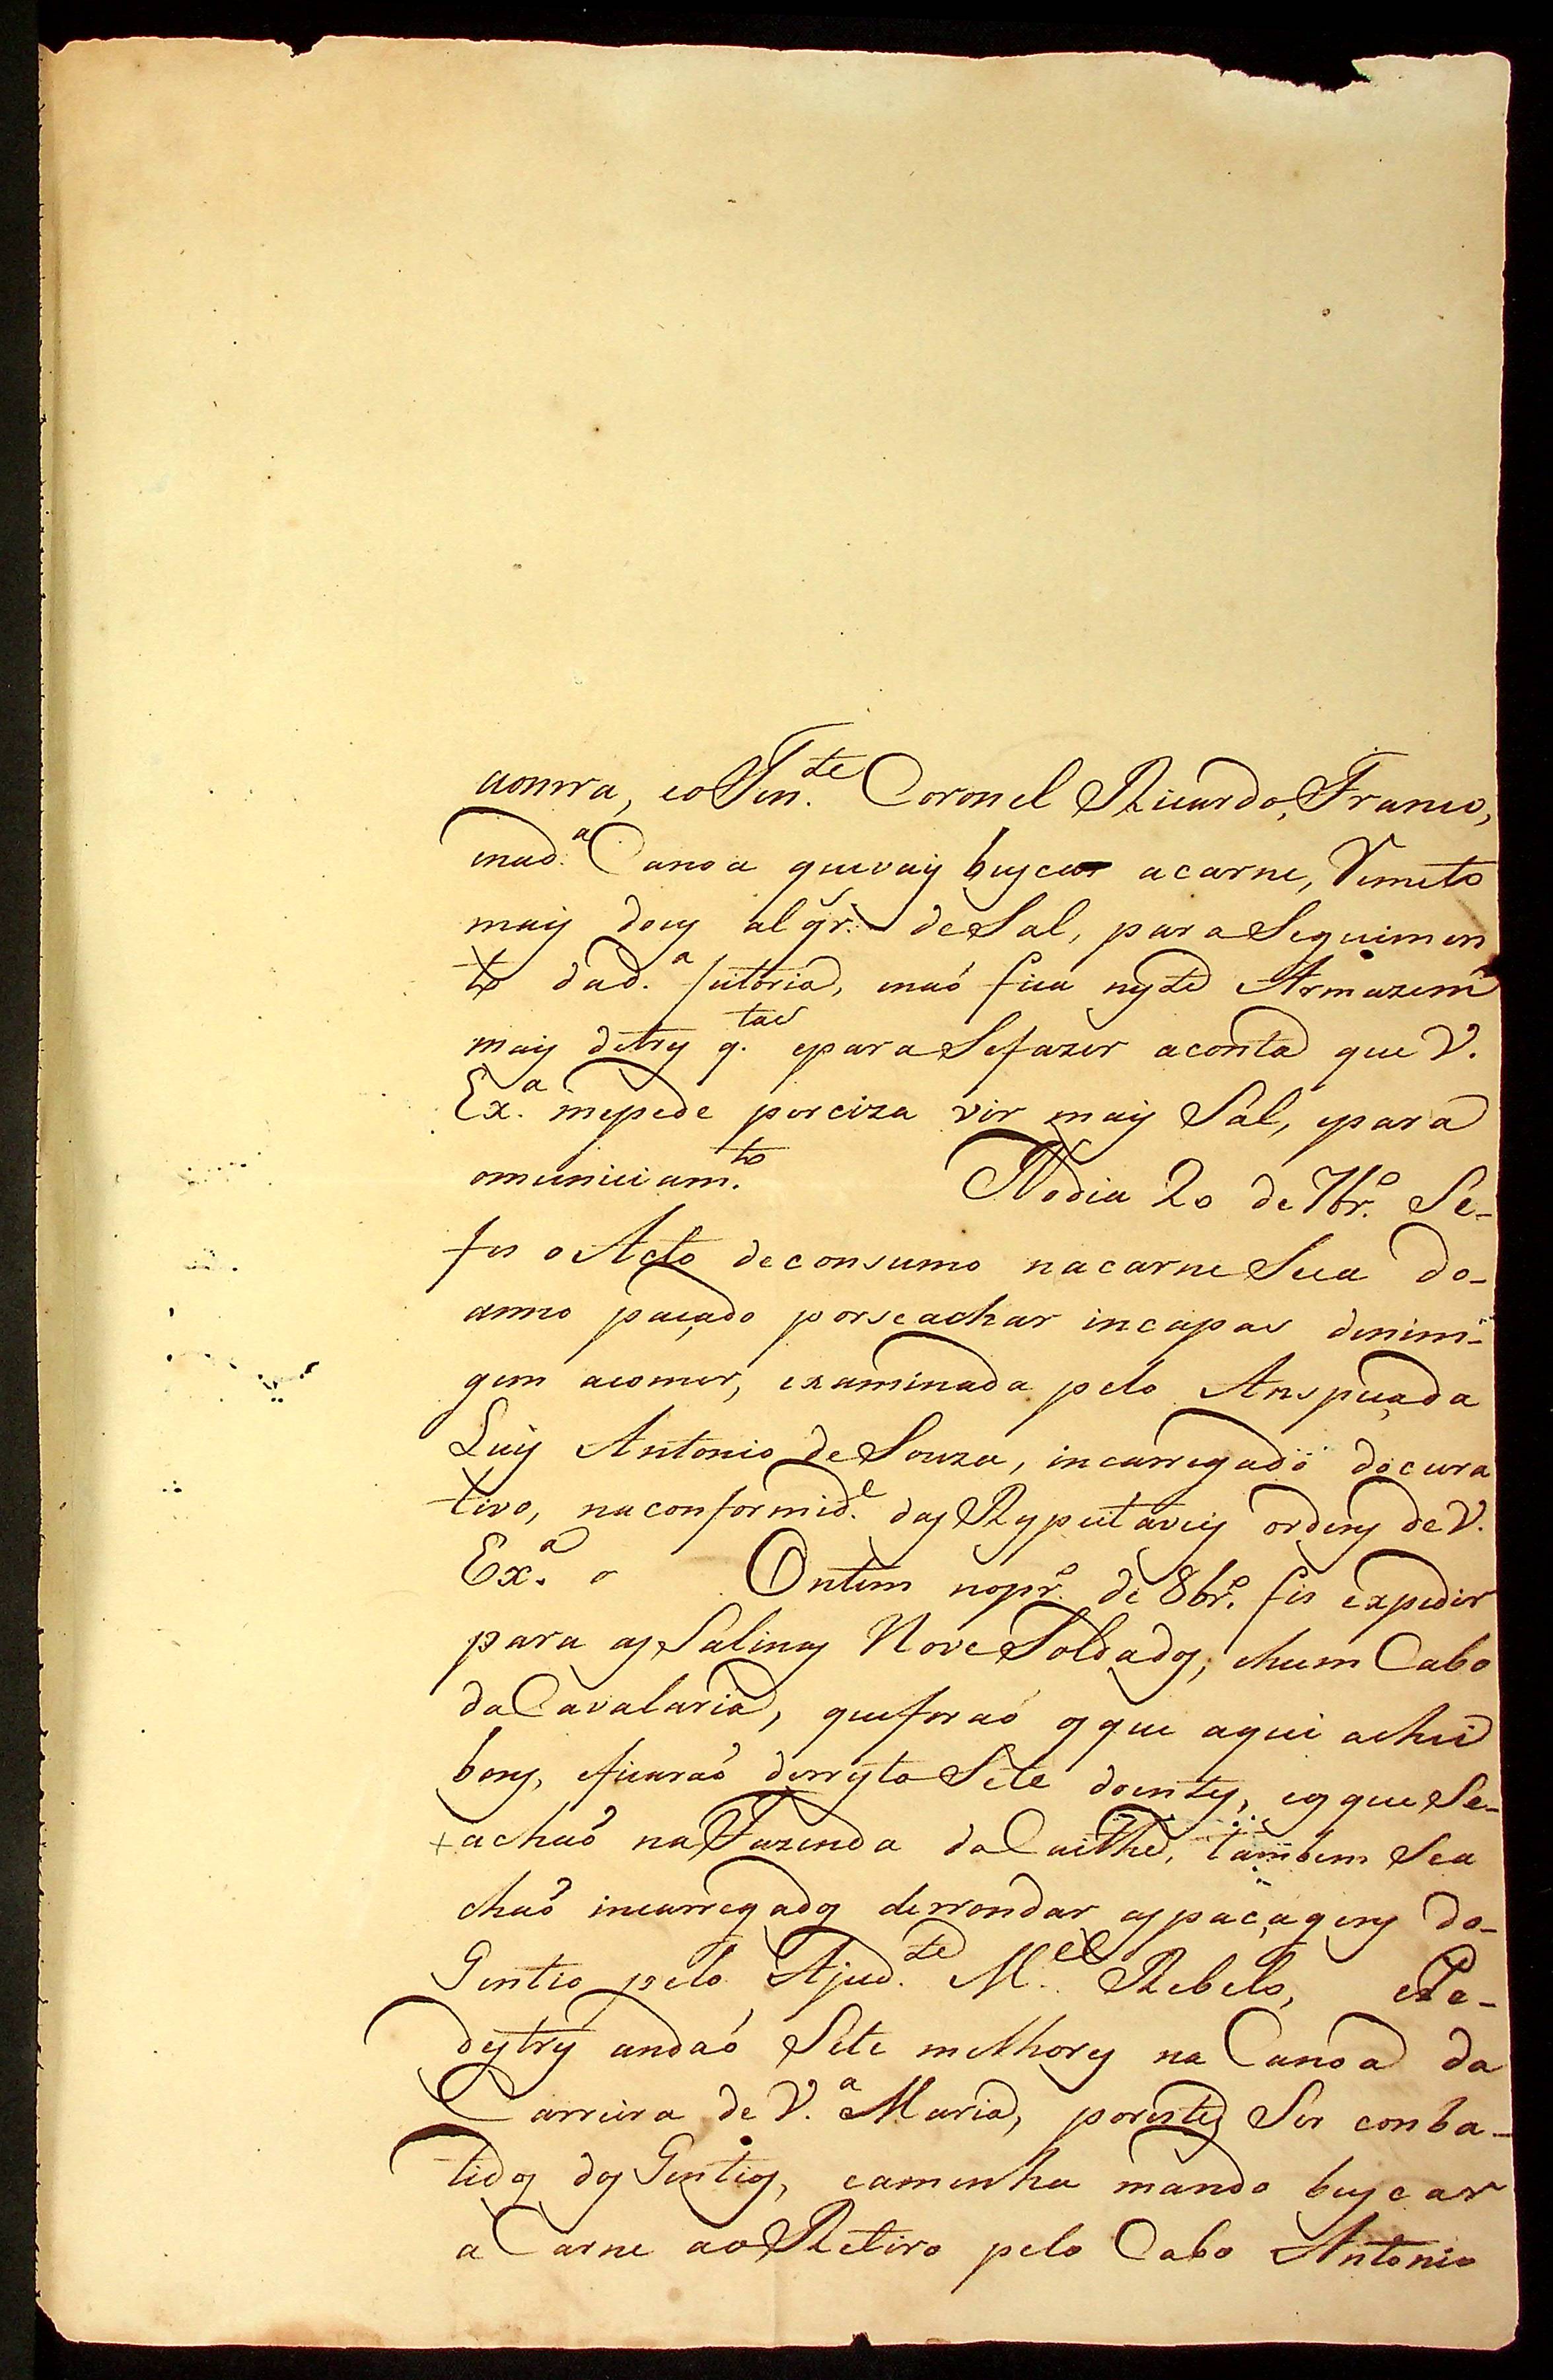 aomra, eo Ten.te Coronel Ricardo, Franco,
enad.a Canoa quevay buscar acarne, Remeto
mais dois alqr.s de Sal, para Seguimen
to dad.a feitoria, enaó fica neste Armazem
mais detres q.tas epara Sefazer aconta que V.
Ex.a mepede perciza vir mais Sal, epara
omuniciam.to Nodia 20 de 7br.o Se-
fes o Acto deconsumo nacarne Seca do-
anno paçado porseachar incapas denim-
guem acomer, examinada pelo Anspeçada
Luis Antonio de Souza, incarregado docura
tivo, naconformid.e das Respeitaveis ordens de V.
Ex.a Ontem nopr.o de 8br.o fis expedir
para as Salinas Nove Soldados, ehum Cabo
da Cavalaria, queforaó os que aqui achei
bons, eficaraó derresto Sete doentes, eos que Se-
achaó na Fazenda da Caithe, tambem Sea
chaó incarregados derrondar as paçagens do-
Gentio pelo Ajud.te M.el Rebelo, eRe-
destes andaó Sete melhores na Canoa da
Carreira de V.a Maria, porestes Ser conba-
tidos dos Gentios, eamenha mando buscar
a Carne ao Retiro pelo Cabo Antonio